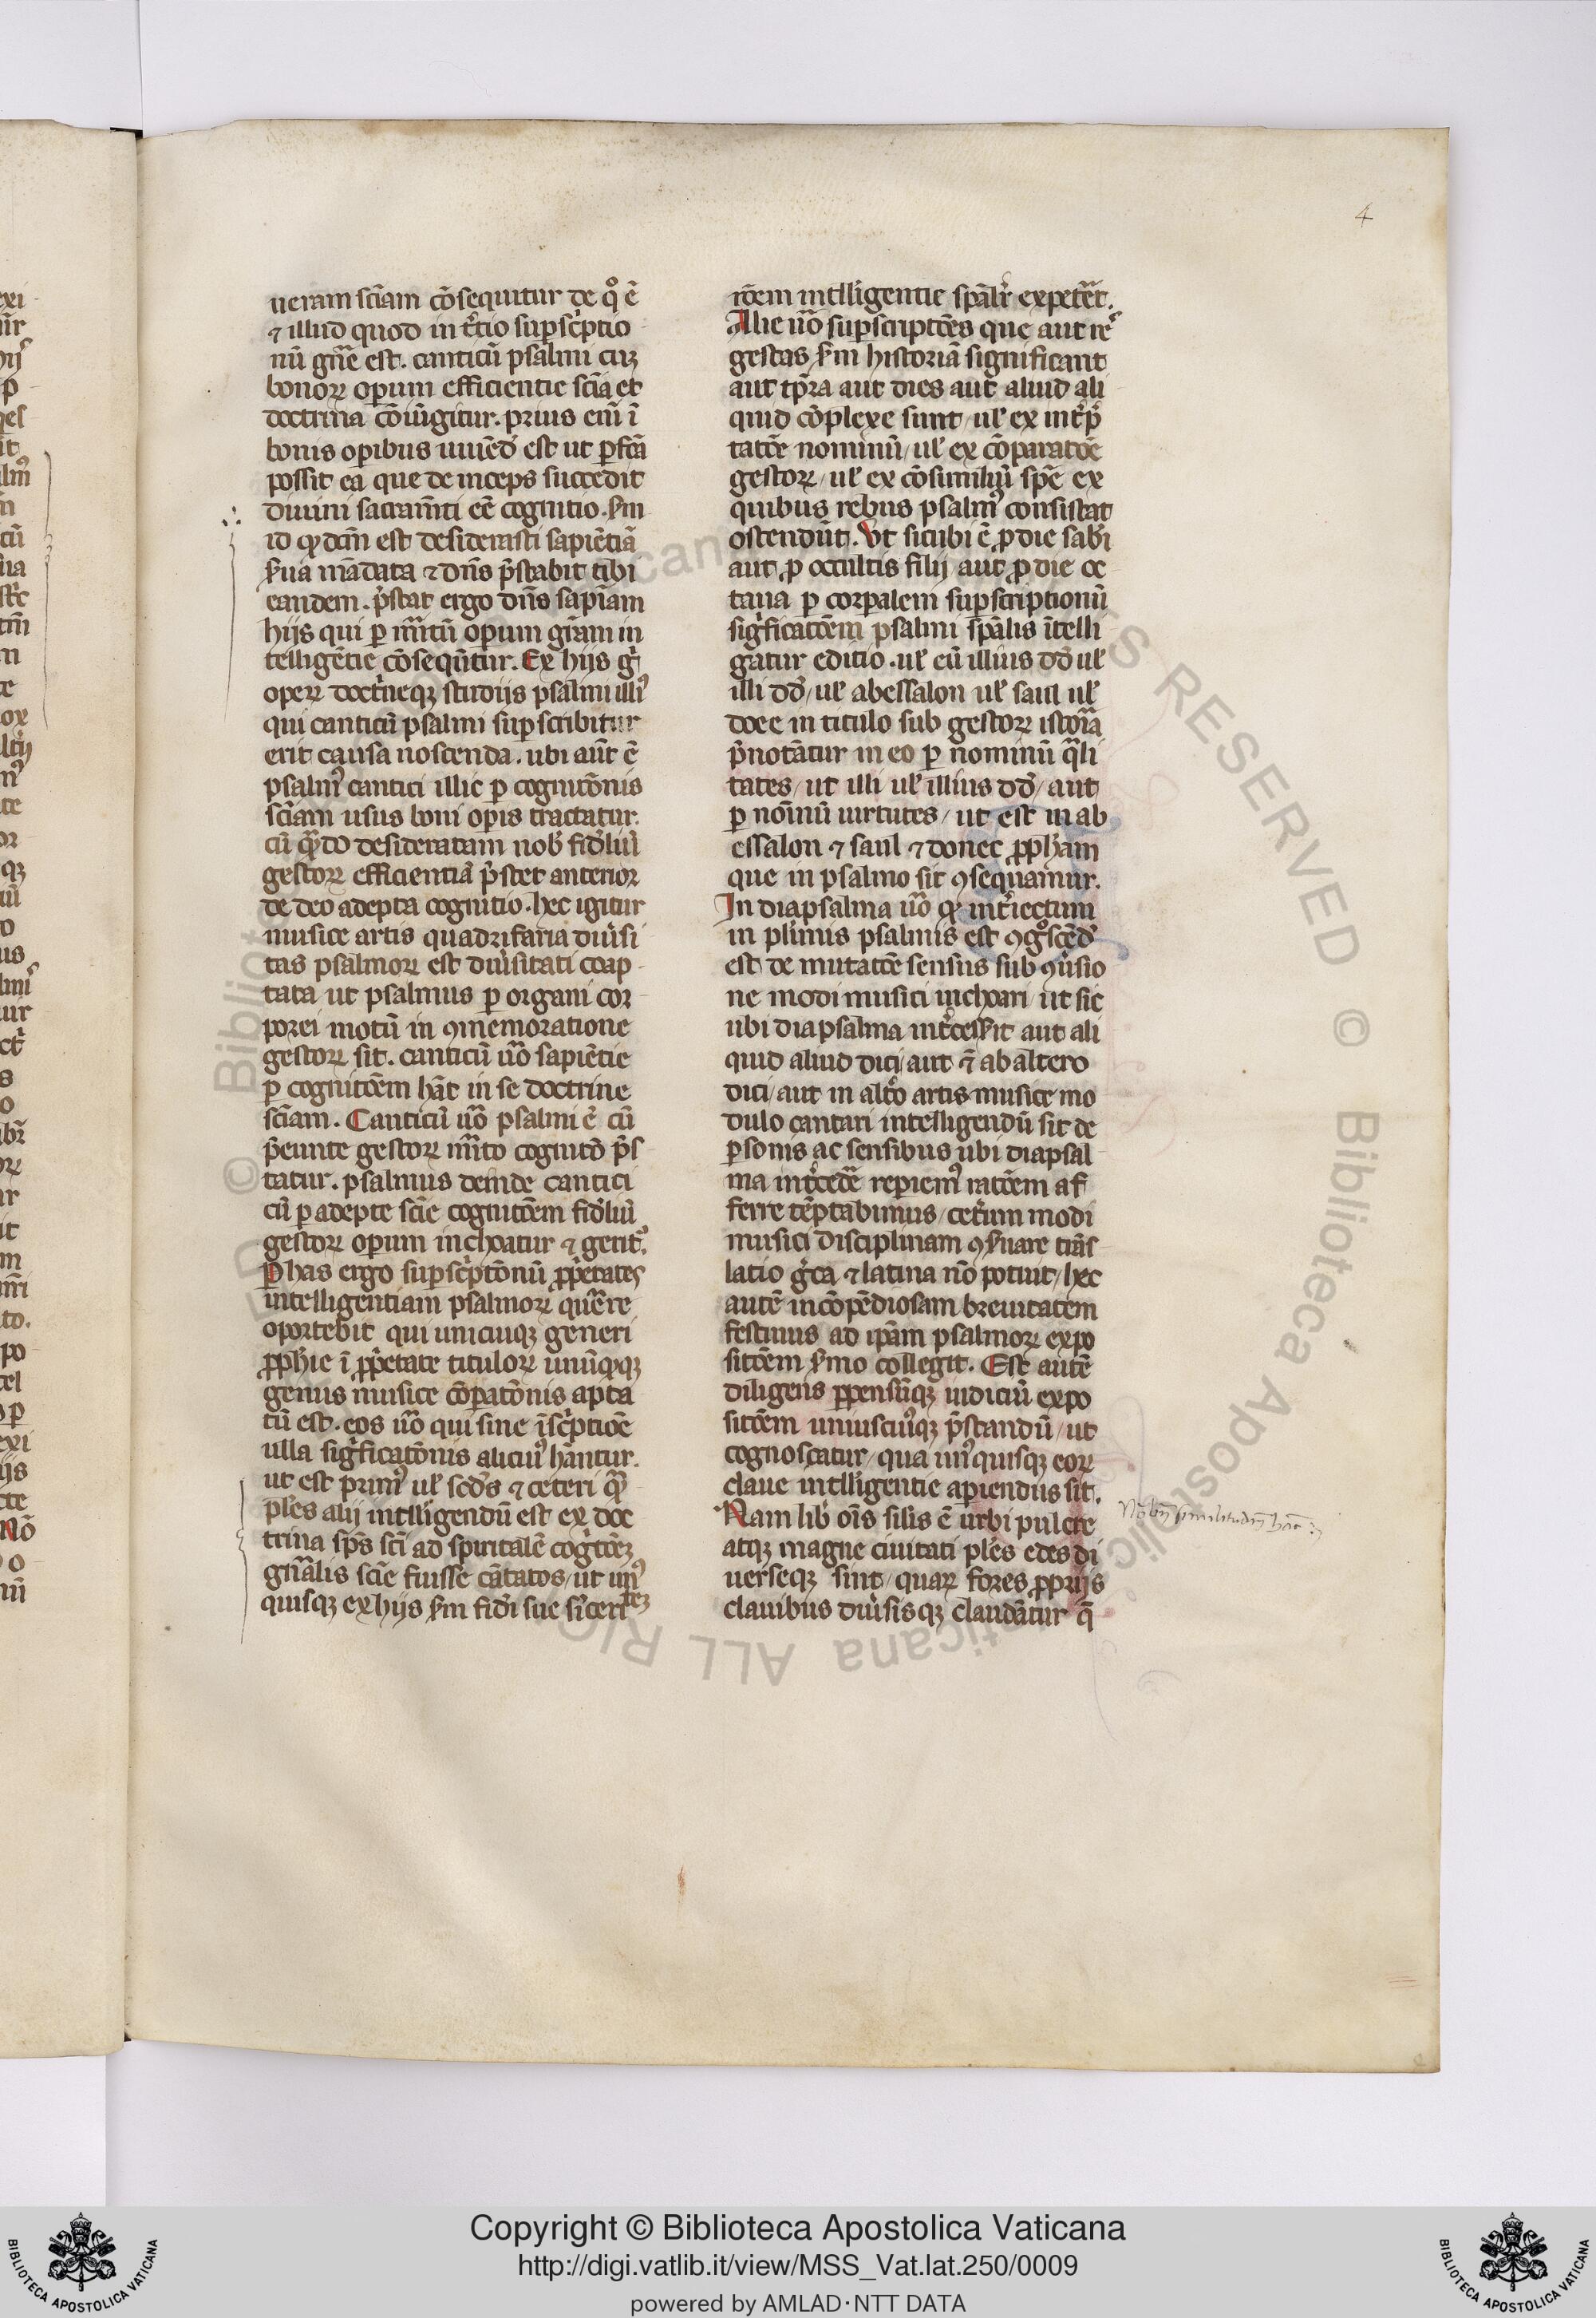 4
ueram sciam cōsequitur de qͦ ē
⁊ illud quod in tcio supscptio
nū gn̄e est. canticū psalmi cuꝫ
bonoꝝ opum efficientie sciā et
doctrina cōiūgitur. prius eni ī
bonis opibus uiuēd est ut pfcā
possit ea que de inceps succedit
diuini sacramn̄ti eē cognitio. sm
id qd dcm̄ est desiderasti sapiētiā
sua mādata ⁊ dn̄s p̄stabit tibi
eandem. p̄stat ergo dn̄s sapīam
hijs qui ꝑ mritū opum grām in
telligētie cōsequntur. Ex hijs gͥ
opeꝝ doctneqꝫ studijs psalmi illiꝰ
qui canticū psalmi supscribitur
erit causa noscenda. ubi aut ē
psalmꝰ cantici illic ꝑ cognitōnis
sciam usus boni opis tractatur.
cū qdo desideratam nob fidliū
gestoꝝ efficientiā p̄stet anterior
de deo adepta cognitio. hec igitur
musice artis quadrifaria diuisi
tas psalmoꝝ est diuisitati coap
tata ut psalmus ꝑ organi cor
porei motū in ꝯmemoratione
gestoꝝ sit. canticū uo sapiētie
ꝑ cognitōem hāt in se doctrine
sciam. Canticū uo psalmi ē cū
p̄eunte gestoꝝ mrito cognitō p̄s
tatur. psalmus deinde cantici
cū ꝑ adepte scīe cognitōem fidliū
gestoꝝ opum inchoatur ⁊ geritꝰ.
Phas ergo supscptōnū ꝓpetates
intelligentiam psalmoꝝ querere
oportebit qui unicuiqꝫ generi
ꝓphie ī ꝓpetate tituloꝝ unūqdqꝫ
genus musice cōpatōnis apta
tū est. eos uo qui sine īscptiōe
ulla sigficatōnis aliciuꝰ hāntur.
ut est primꝰ ul scds ⁊ ceteri q̄
ples alij intlligendū est ex doc
trina sps̄ sci ad spiritalē cogtōeꝫ
gnalis scīe fuisse cātatos/ ut unꝰ
quisqꝫ ex hijs sm fidi sue sīceritteꝫ
tōem intlligentie spāliꝉ expetret.
Alie uo superscriptōes que aut res
gestas sm historiā significant
aut tpra aut dies aut aliud ali
quid cōplexe sunt/ ul ex intpͥ
tatōe nominū/ ul ex cōparatōe
gestoꝝ/ ul ex cōsimiliū spē ex
quibus rebus psalmꝰ consistat
ostendūt. Ut sicubi ē ꝓ die sabi
aut ꝓ occultis filij aut ꝓ die oc
taua ꝑ corpalem supscriptionū
sigficatōem psalmi spālis ītelli
gatur editio. ul cū illius dd ul
illi dd/ ul abessalon ul saul ul
doec in titulo sub gestoꝝ istoria
p̄notātur in eo ꝑ nominū qli
tates/ ut illi ul illius dd/ aut
ꝑ noīnū uirtutes/ ut est in ab
essalon ⁊ saul ⁊ donec ꝓphiam
que in psalmo sit ꝯsequamur.
In diapsalma uo qd intiectum
in plimis psalmis est ꝯgoscēd
est de mutatōe sensus sub ꝯuisio
ne modi musici inchoari ut sic
ubi diapsalma intcessit aut ali
quid aliud dici/ aut ⁊ ab altero
dici/ aut in altō artis musice mo
dulo cantari intelligendū sit de
psonis ac sensibus ubi diapsal
ma intcedē repiemꝰ ratōem af
ferre tēptabimus/ cetum modi
musici disciplinam ꝯsuare trās
latio gca ⁊ latina nō potuit/ hec
autē in cōpēdiosam breuitatem
festinus ad ipam psalmoꝝ expo
sitōem smo collegit. Est autē
diligens ꝑpensūqꝫ iudiciū expo
sitōem uniuscuiꝰqꝫ p̄standū/ ut
cognoscatur/ qua unꝰquisqꝫ eoꝝ
claue intlligentie apiendus sit.
Nam lib oīs silis ē urbi pulcre
atqꝫ magne ciuitati ples edes di
uerseqꝫ sint/ quaꝝ fores ꝓprijs
clauibus diuisisqꝫ claudātur q̄
Copyright © Biblioteca Apostolica Vaticana
http://digi.vatlib.it/view/MSS_Vat.lat.250/0009
powered by AMLAD·NTT DATA
BIBLIOTECA APOSTOLICA VATICANA
BIBLIOTECA APOSTOLICA VATICANA